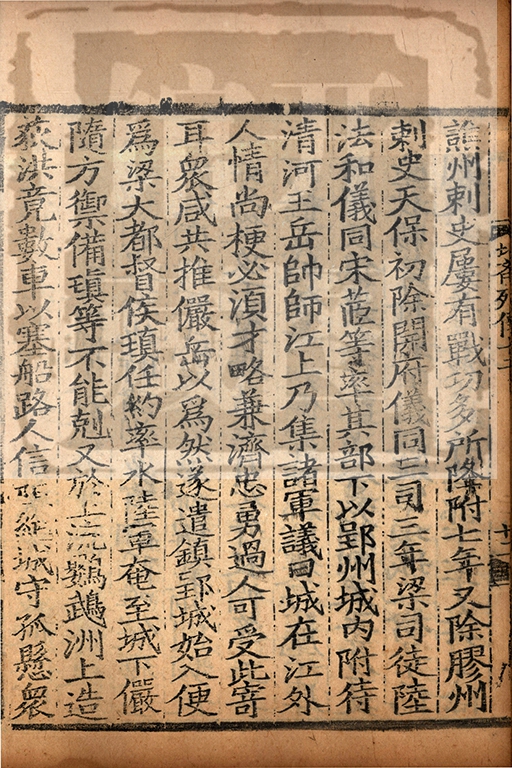 譙州刺史屢有戰功多所降附七年又除膠州
刺史天保初除開府儀同三司三年梁司徒陸
法和儀同宋茝等率其部下以郢州城内附待
清河王岳帥師江上乃集諸軍議曰城在江外
人情尚梗必須才略兼濟忠勇過人可受此寄
耳衆咸共推儼岳以爲然遂遣鎮郢城始入便
爲梁大都督侯瑱任約率水陸軍奄至城下儼
隨方禦備瑱等不能剋又於上流鸚鵡洲上造
荻洪竟數車以塞船路人信城守孤懸衆